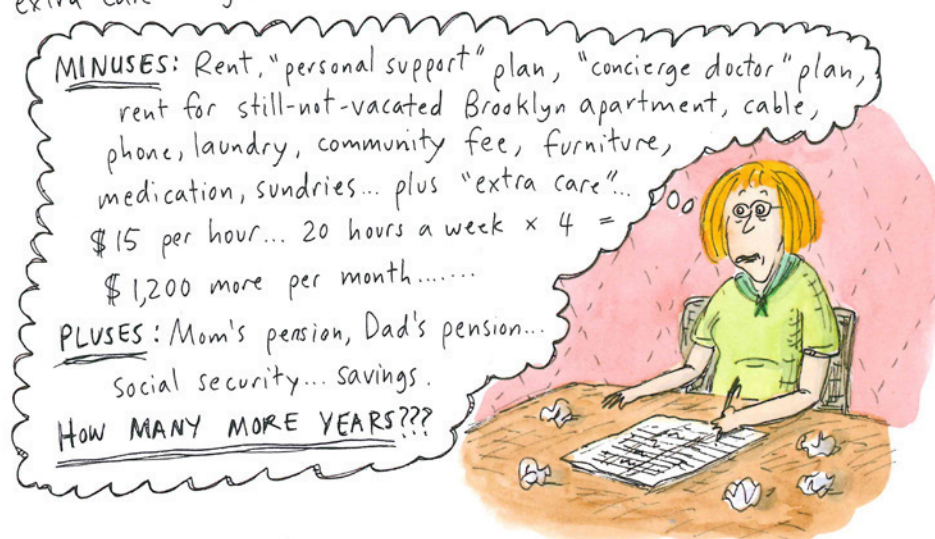 extra care
MINUSES: Rent, "personal support" plan, "concierge doctor" plan,
rent for still-not-vacated Brooklyn apartment, cable,
phone, laundry, community fee, furniture,
medication, sundries... plus "extra care"...
$15 per hour... 20 hours a week × 4 =
$1,200 more per month.......
PLUSES: Mom's pension, Dad's pension...
social security... savings.
HOW MANY MORE YEARS???